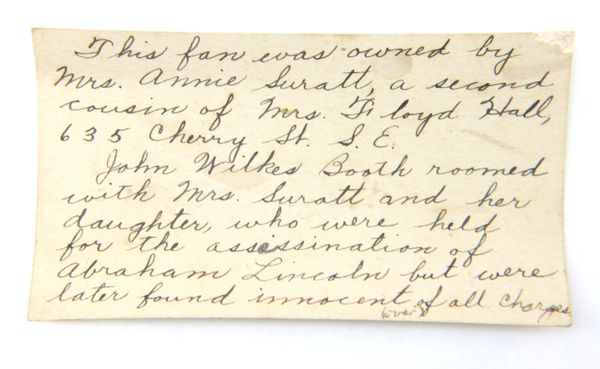 This fan was owned by
Mrs. Annie Suratt, a second
cousin of Mrs. Floyd Hall,
635 Cherry St. S.E.
John Wilkes Booth roomed
with Mrs. Suratt and her
daughter, who were held
for the assessination of
Abraham Lincoln but were
later found innocent of all charges
(over)